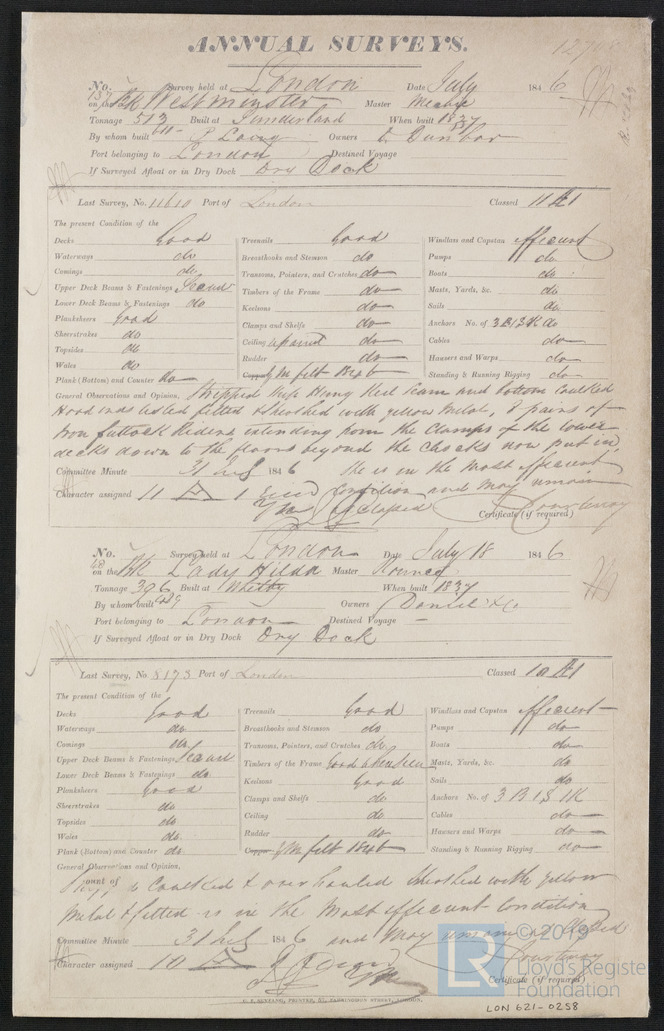 ANNUAL SURVEYS.
No. Survey held at London Date July 1846
on the Bk Westminster Master
Tonnage 513 Built at Sunderland When built 1837
By whom built P Laing Owners D Dunbar
Port belonging to London Destined Voyage
If Surveyed Afloat or in Dry Dock Dry Dock
Last Survey, No. 11610 Port of London Classed 11 A1
The present Condition of the
Decks Good Treenails Good Windlass and Capstan efficient
Waterways do Breasthooks and Stemson do Pumps do
Comings do Transoms, Pointers, and Crutches do Boats do
Upper Deck Beams & Fastenings Sound Timbers of the Frame do Masts, Yards, &c. do
Lower Deck Beams & Fastenings do Keelsons do Sails do
Planksheers Good Clamps and Shelfs do Anchors No. of 3 B 1 S 1 K do
Sheerstrakes do Ceiling do Cables do
Topsides do Rudder do Hawsers and Warps do
Wales do Copper YM felt 1846 Standing & Running Rigging do
Plank (Bottom) and Counter do
General Observations and Opinion, Stripped Keel Seam and bottom Caulked
felted & sheathed with yellow Metal, 8 pairs of
Iron futtock Riders extending from the clamps of the lower
decks down to the floors beyond the Chocks now put in,
Committee Minute 31 July 1846 She is in the most efficient
Character assigned 11 A 1 condition and may remain
as Classed Courtenay
Certificate (if required)
No. Survey held at London Date July 18 1846
on the Bk Lady Hilda Master
Tonnage 396 Built at Whitby When built 1837
By whom built Owners Daniel & Co
Port belonging to London Destined Voyage –
If Surveyed Afloat or in Dry Dock Dry Dock
Last Survey, No 8173 Port of London Classed 10 A1
The present Condition of the
Decks Good Treenails Good Windlass and Capstan efficient
Waterways do Breasthooks and Stemson do Pumps do
Comings do Transoms, Pointers, and Crutches do Boats do
Upper Deck Beams & Fastenings Sound Timbers of the Frame Good when seen Masts, Yards, &c. do
Lower Deck Beams & Fastenings do Keelsons Good Sails do
Planksheers Good Clamps and Shelfs do Anchors No. of 3 B 1 S 1K
Sheerstrakes do Ceiling do Cables do
Topsides do Rudder do Hawsers and Warps do
Wales do Copper YM felt 1846 Standing & Running Rigging do
Plank (Bottom) and Counter do
General Observations and Opinion,
Stripp'd Caulked & overhauled sheathed with yellow
Metal & felted is in the most efficient Condition
Committee Minute 31 July 1846 and may remain as Classed
Character assigned 10 A Courtenay
Certificate (if required)
© 2019
LR
Lloyd's Register
Foundation
LON 621-0258